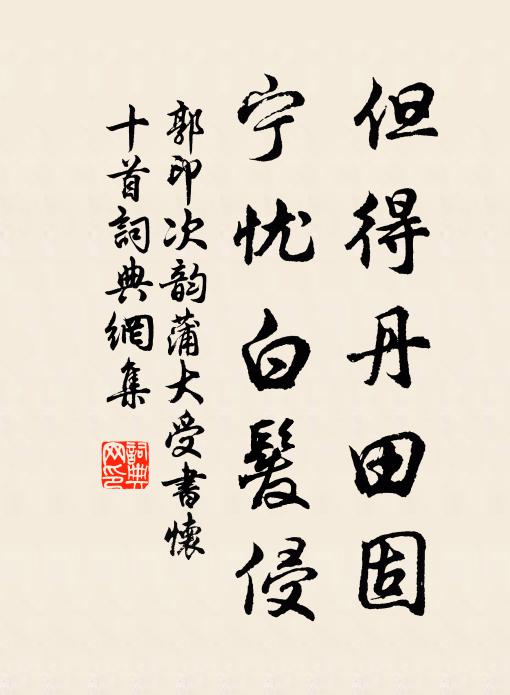 但得丹田固
宁忧白髮侵
郭印次韵蒲大受書懷
十首詞典網集
詞典
网印